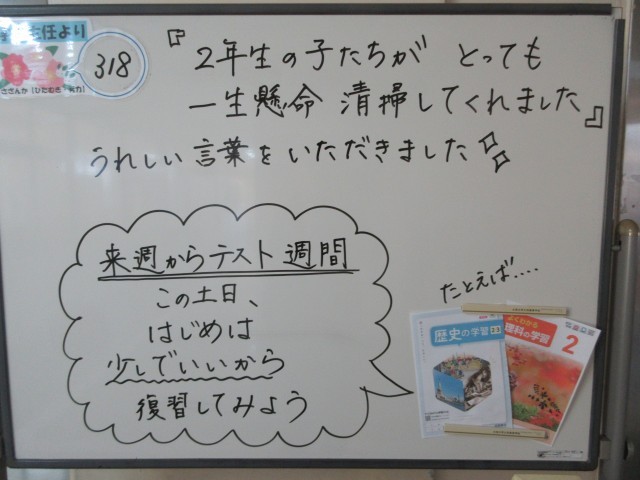 主任より
318
さざんか〔ひたむき・
『2年生の子たちが とっても
一生懸命 清掃してくれました』
うれしい言葉をいただきました
来週からテスト週間
この土日、
はじめは
少しでいいから
復習してみよう
たとえば‥‥
歴史の学習
よくわかる
理科の学習
2